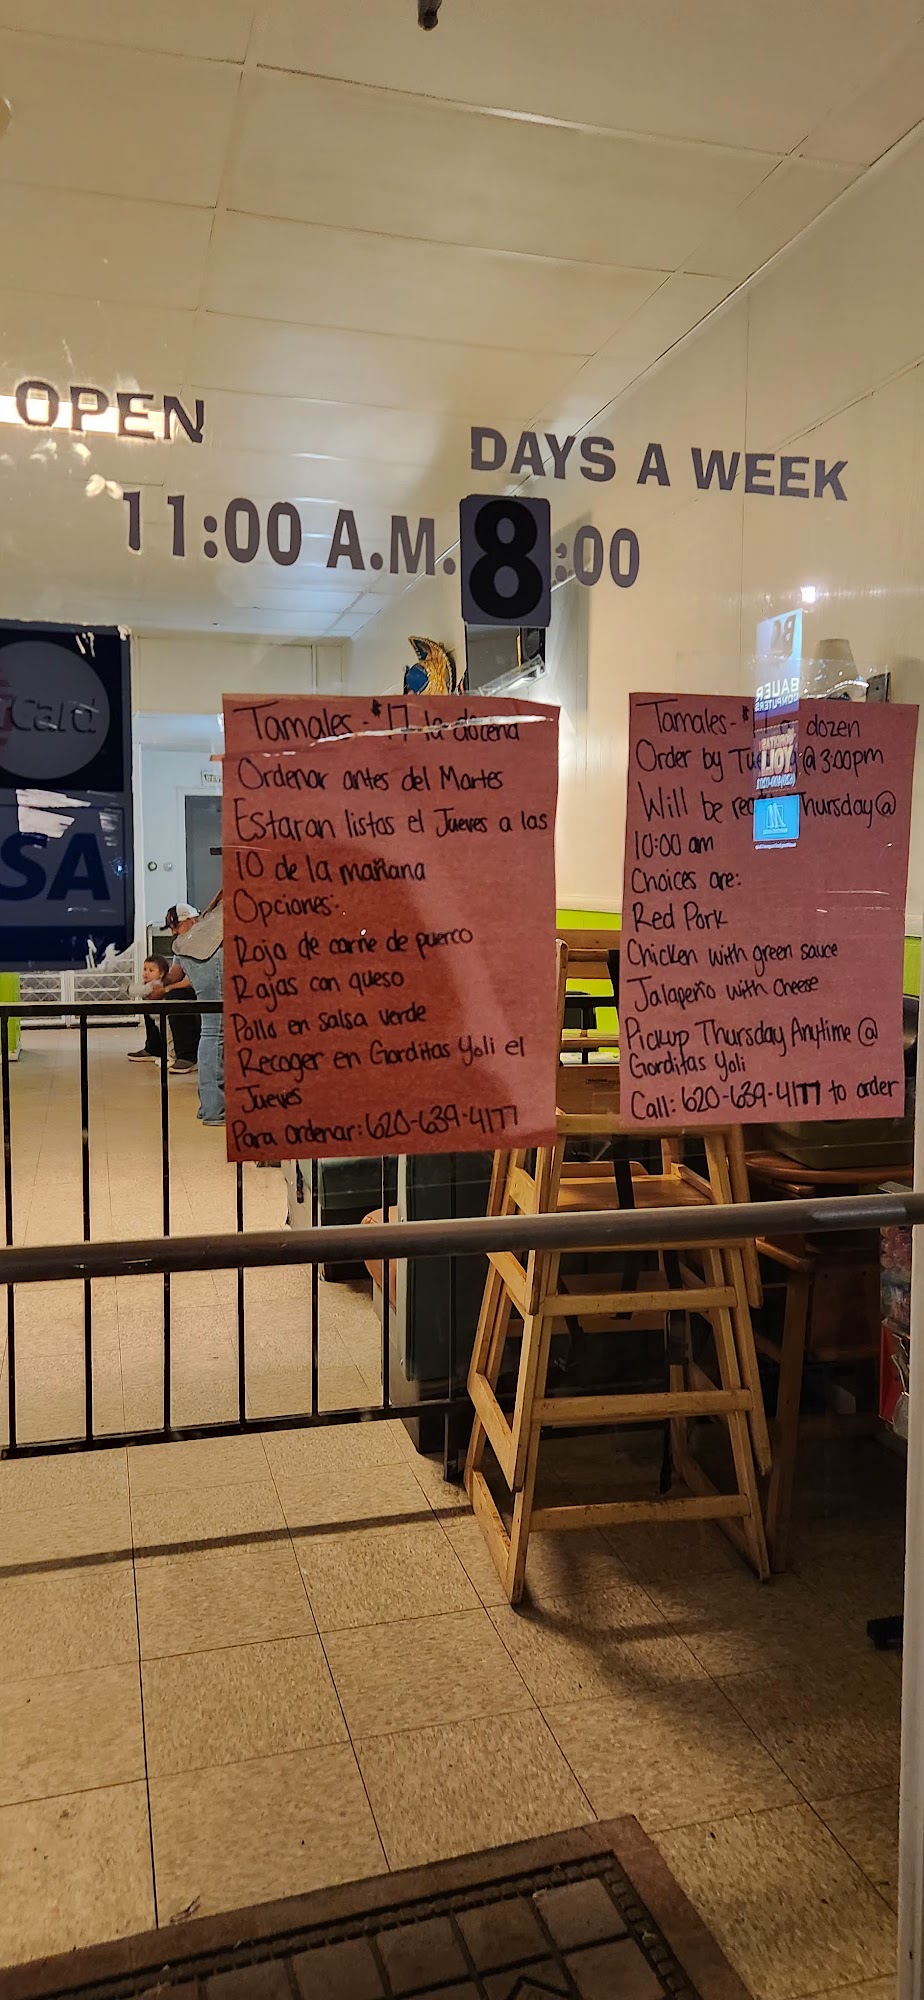 OPEN
DAYS A WEEK
11:00 A.M. 8:00
Card
SA
Tamales - $17 la docena
Ordenar antes del Martes
Estaran listas el Jueves a las
10 de la mañana
Opciones:
Rojo de carne de puerco
Rajas con queso
Pollo en salsa verde
Recoger en Gorditas Yoli el
Jueves
Para ordenar: 620-639-4177
Tamales- $ dozen
Order by @ 3:00pm
Will be Thursday @
10:00 am
Choices are:
Red Pork
Chicken with green sauce
Jalapeño with cheese
Pickup Thursday Anytime @
Gorditas Yoli
Call: 620-639-4177 to order
BAUER
COMPUTERS
YOLI